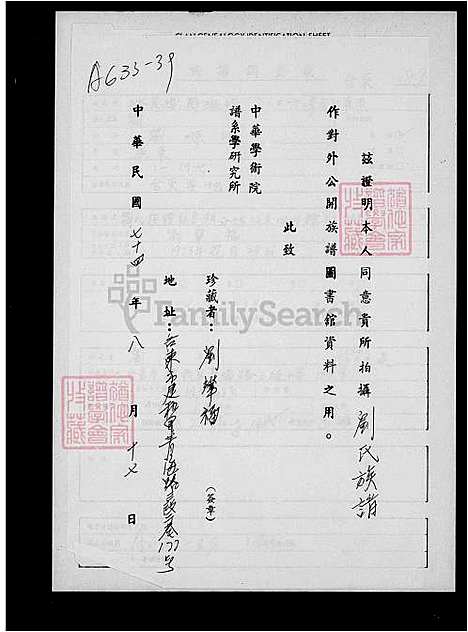 CLAN GENEALOGY IDENTIFICATION SHEET
A633-39
茲證明本人同意貴所拍攝劉氏族譜
作對外公開族譜圖書館資料之用。
此致
中華學術院
譜系學研究所
珍藏者：劉
(簽章)
地址：台東市
177号
中華民國七十四年八月十七日
FamilySearch